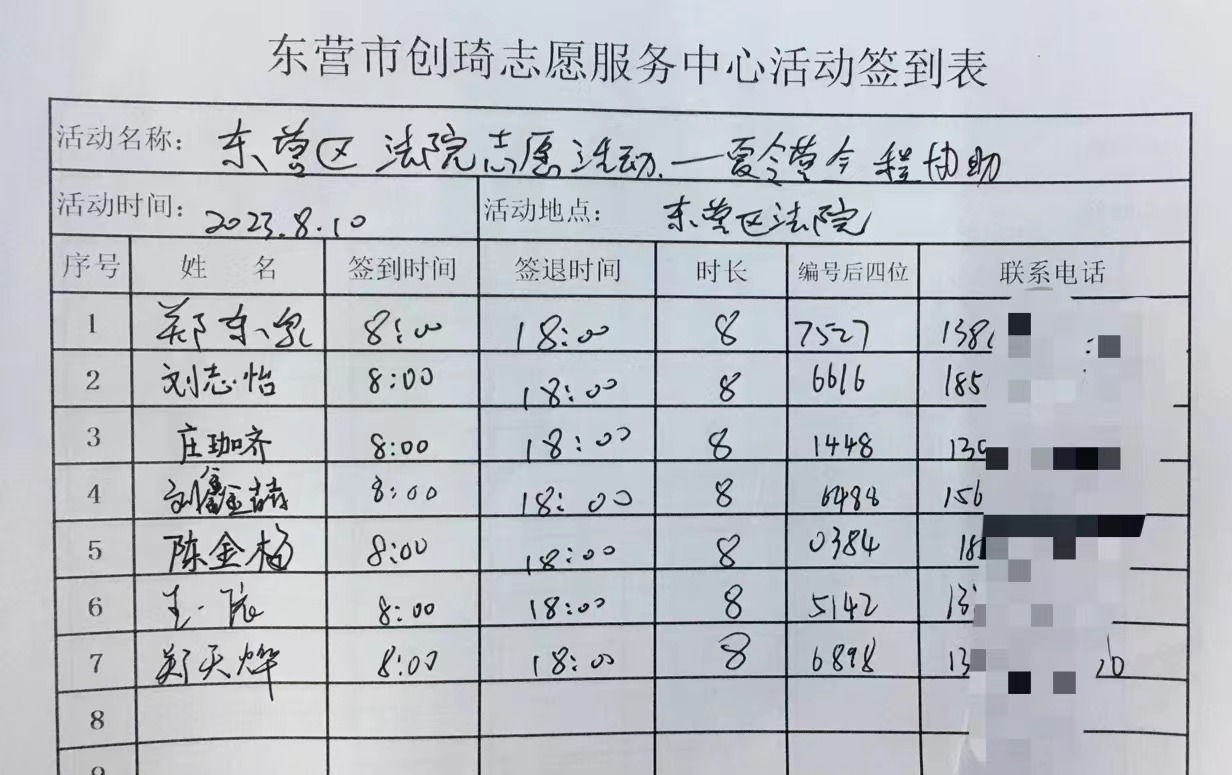 东营市创琦志愿服务中心活动签到表
活动名称: 东营区法院志愿活动.—夏令营全程协助
活动时间: 2023.8.10 活动地点: 东营区法院
序号 姓名 签到时间 签退时间 时长 编号后四位 联系电话
1 郑东泉 8:00 18:00 8 7527 138
2 刘志怡 8:00 18:00 8 6616 185
3 庄珈齐 8:00 18:00 8 1448 130
4 刘鑫喆 8:00 18:00 8 6488 156
5 陈金杨 8:00 18:00 8 0384 18
6 王一宸 8:00 18:00 8 5142 13
7 郑天烨 8:00 18:00 8 6898 13 26
8